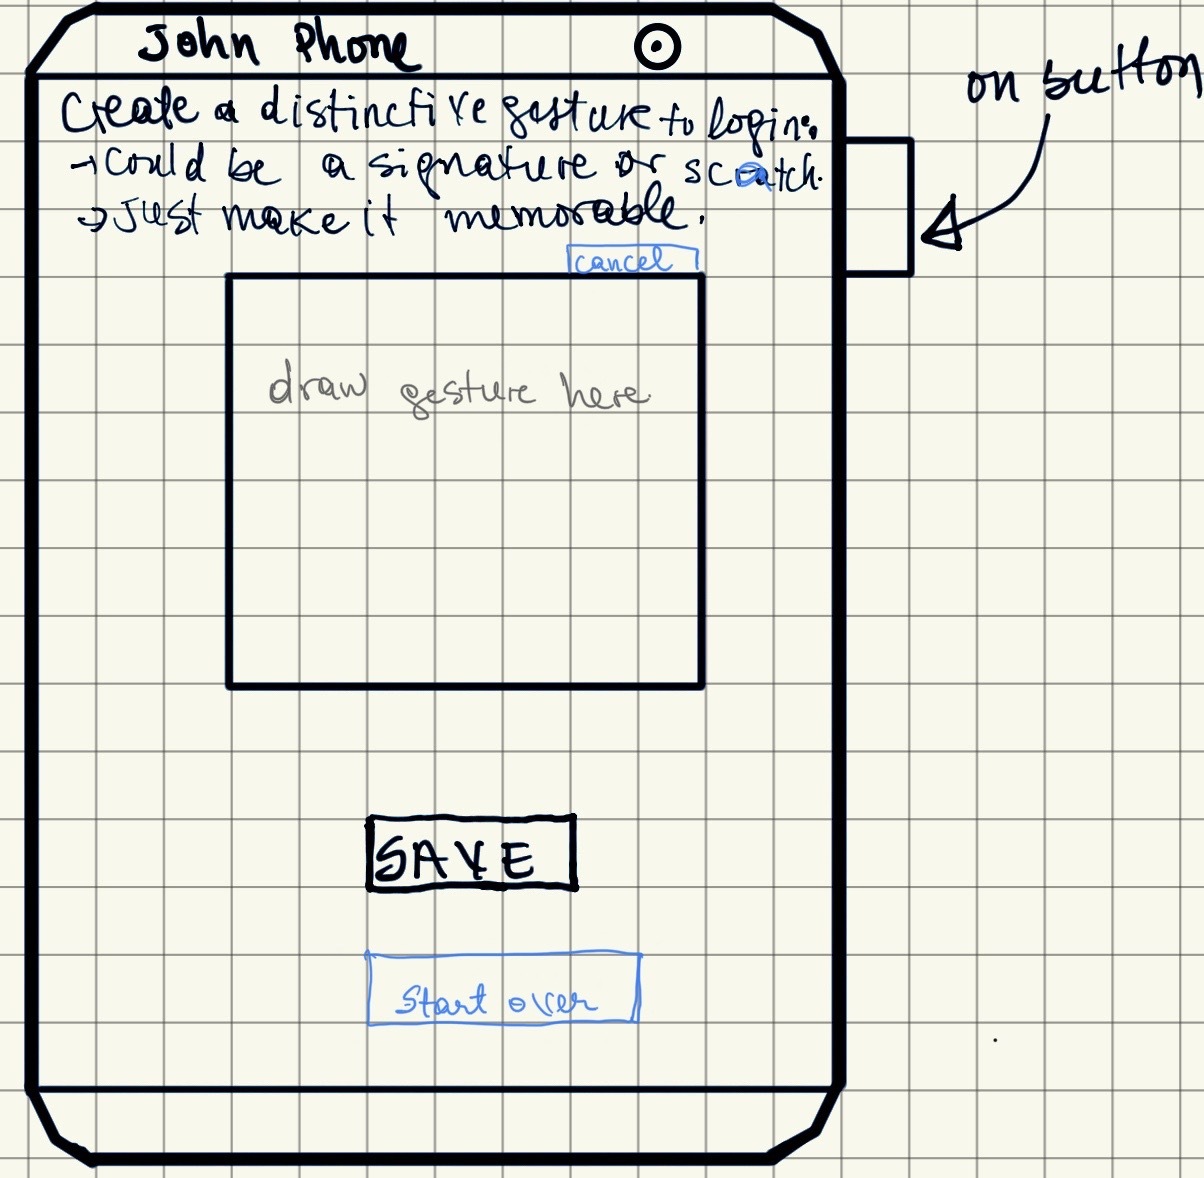 John Phone
on button
Create a distinctive gesture to login.
→ Could be a signature or scratch.
→ Just make it memorable.
cancel
draw gesture here
SAVE
Start over